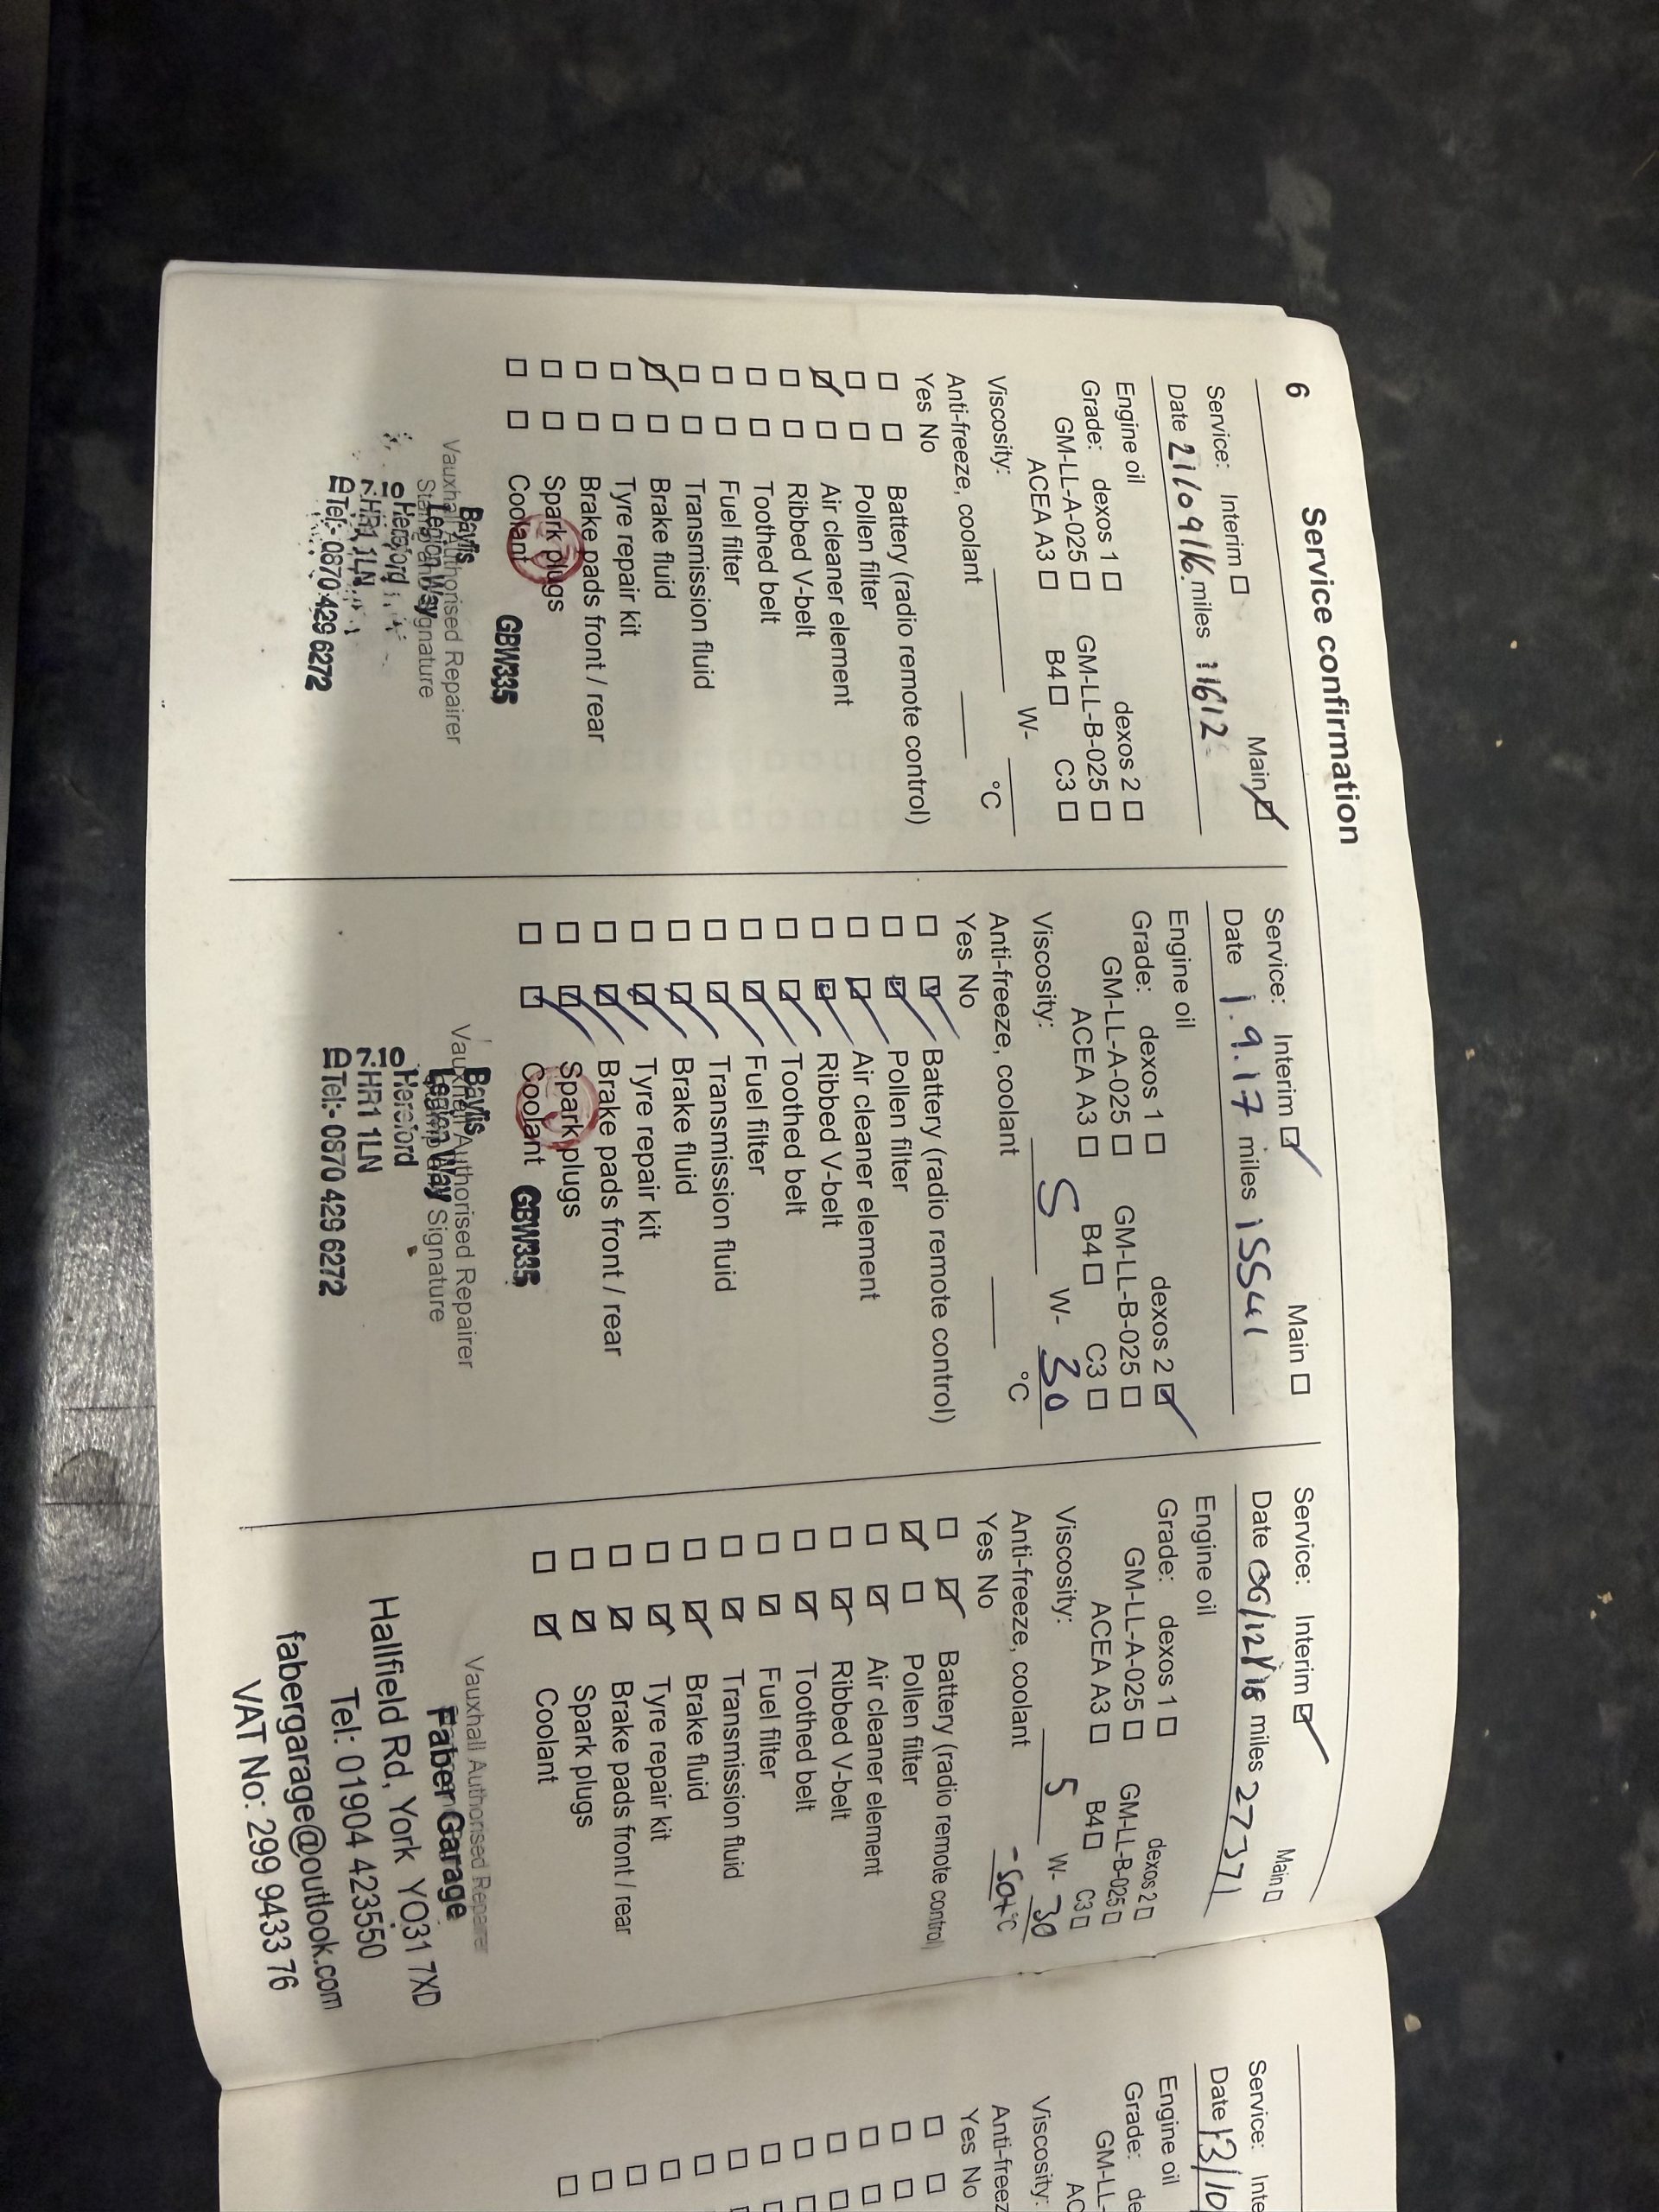 6
Service confirmation
Service: Interim ☐ Main ☑
Date 21/09/16 miles 11612
Engine oil
Grade: dexos 1 ☐ dexos 2 ☐
GM-LL-A-025 ☐ GM-LL-B-025 ☐
ACEA A3 ☐ B4 ☐ C3 ☐
Viscosity: W-
Anti-freeze, coolant °C
Yes No
☐ ☐ Battery (radio remote control)
☐ ☐ Pollen filter
☑ ☐ Air cleaner element
☐ ☐ Ribbed V-belt
☐ ☐ Toothed belt
☐ ☐ Fuel filter
☐ ☐ Transmission fluid
☑ ☐ Brake fluid
☐ ☐ Tyre repair kit
☐ ☐ Brake pads front / rear
☐ ☐ Spark plugs
☐ ☐ Coolant
GBW335
Vauxhall Authorised Repairer
Stamp and Signature
Baylis
Legion Way
Hereford
HR1 1LN
Tel:- 0870 429 6272
Service: Interim ☑ Main ☐
Date 1.9.17 miles 15541
Engine oil
Grade: dexos 1 ☐ dexos 2 ☑
GM-LL-A-025 ☐ GM-LL-B-025 ☐
ACEA A3 ☐ B4 ☐ C3 ☐
Viscosity: 5 W- 30
Anti-freeze, coolant °C
Yes No
☐ ☑ Battery (radio remote control)
☐ ☑ Pollen filter
☐ ☑ Air cleaner element
☐ ☑ Ribbed V-belt
☐ ☑ Toothed belt
☐ ☑ Fuel filter
☐ ☑ Transmission fluid
☐ ☑ Brake fluid
☐ ☑ Tyre repair kit
☐ ☑ Brake pads front / rear
☐ ☑ Spark plugs
☐ ☑ Coolant
GBW335
Vauxhall Authorised Repairer
Stamp and Signature
Baylis
Legion Way
Hereford
HR1 1LN
Tel:- 0870 429 6272
Service: Interim ☑ Main ☐
Date 06/12/18 miles 27371
Engine oil
Grade: dexos 1 ☐ dexos 2 ☐
GM-LL-A-025 ☐ GM-LL-B-025 ☐
ACEA A3 ☐ B4 ☐ C3 ☐
Viscosity: 5 W- 30
Anti-freeze, coolant °C
Yes No
☐ ☑ Battery (radio remote control)
☑ ☐ Pollen filter
☐ ☑ Air cleaner element
☐ ☑ Ribbed V-belt
☐ ☑ Toothed belt
☐ ☑ Fuel filter
☐ ☑ Transmission fluid
☐ ☑ Brake fluid
☐ ☑ Tyre repair kit
☐ ☑ Brake pads front / rear
☐ ☑ Spark plugs
☐ ☑ Coolant
Vauxhall Authorised Repairer
Faber Garage
Hallfield Rd, York YO31 7XD
Tel: 01904 423550
fabergarage@outlook.com
VAT No: 299 9433 76
Service: Inte
Date 13/10
Engine oil
Grade: de
GM-LL-
AC
Viscosity:
Anti-freez
Yes No